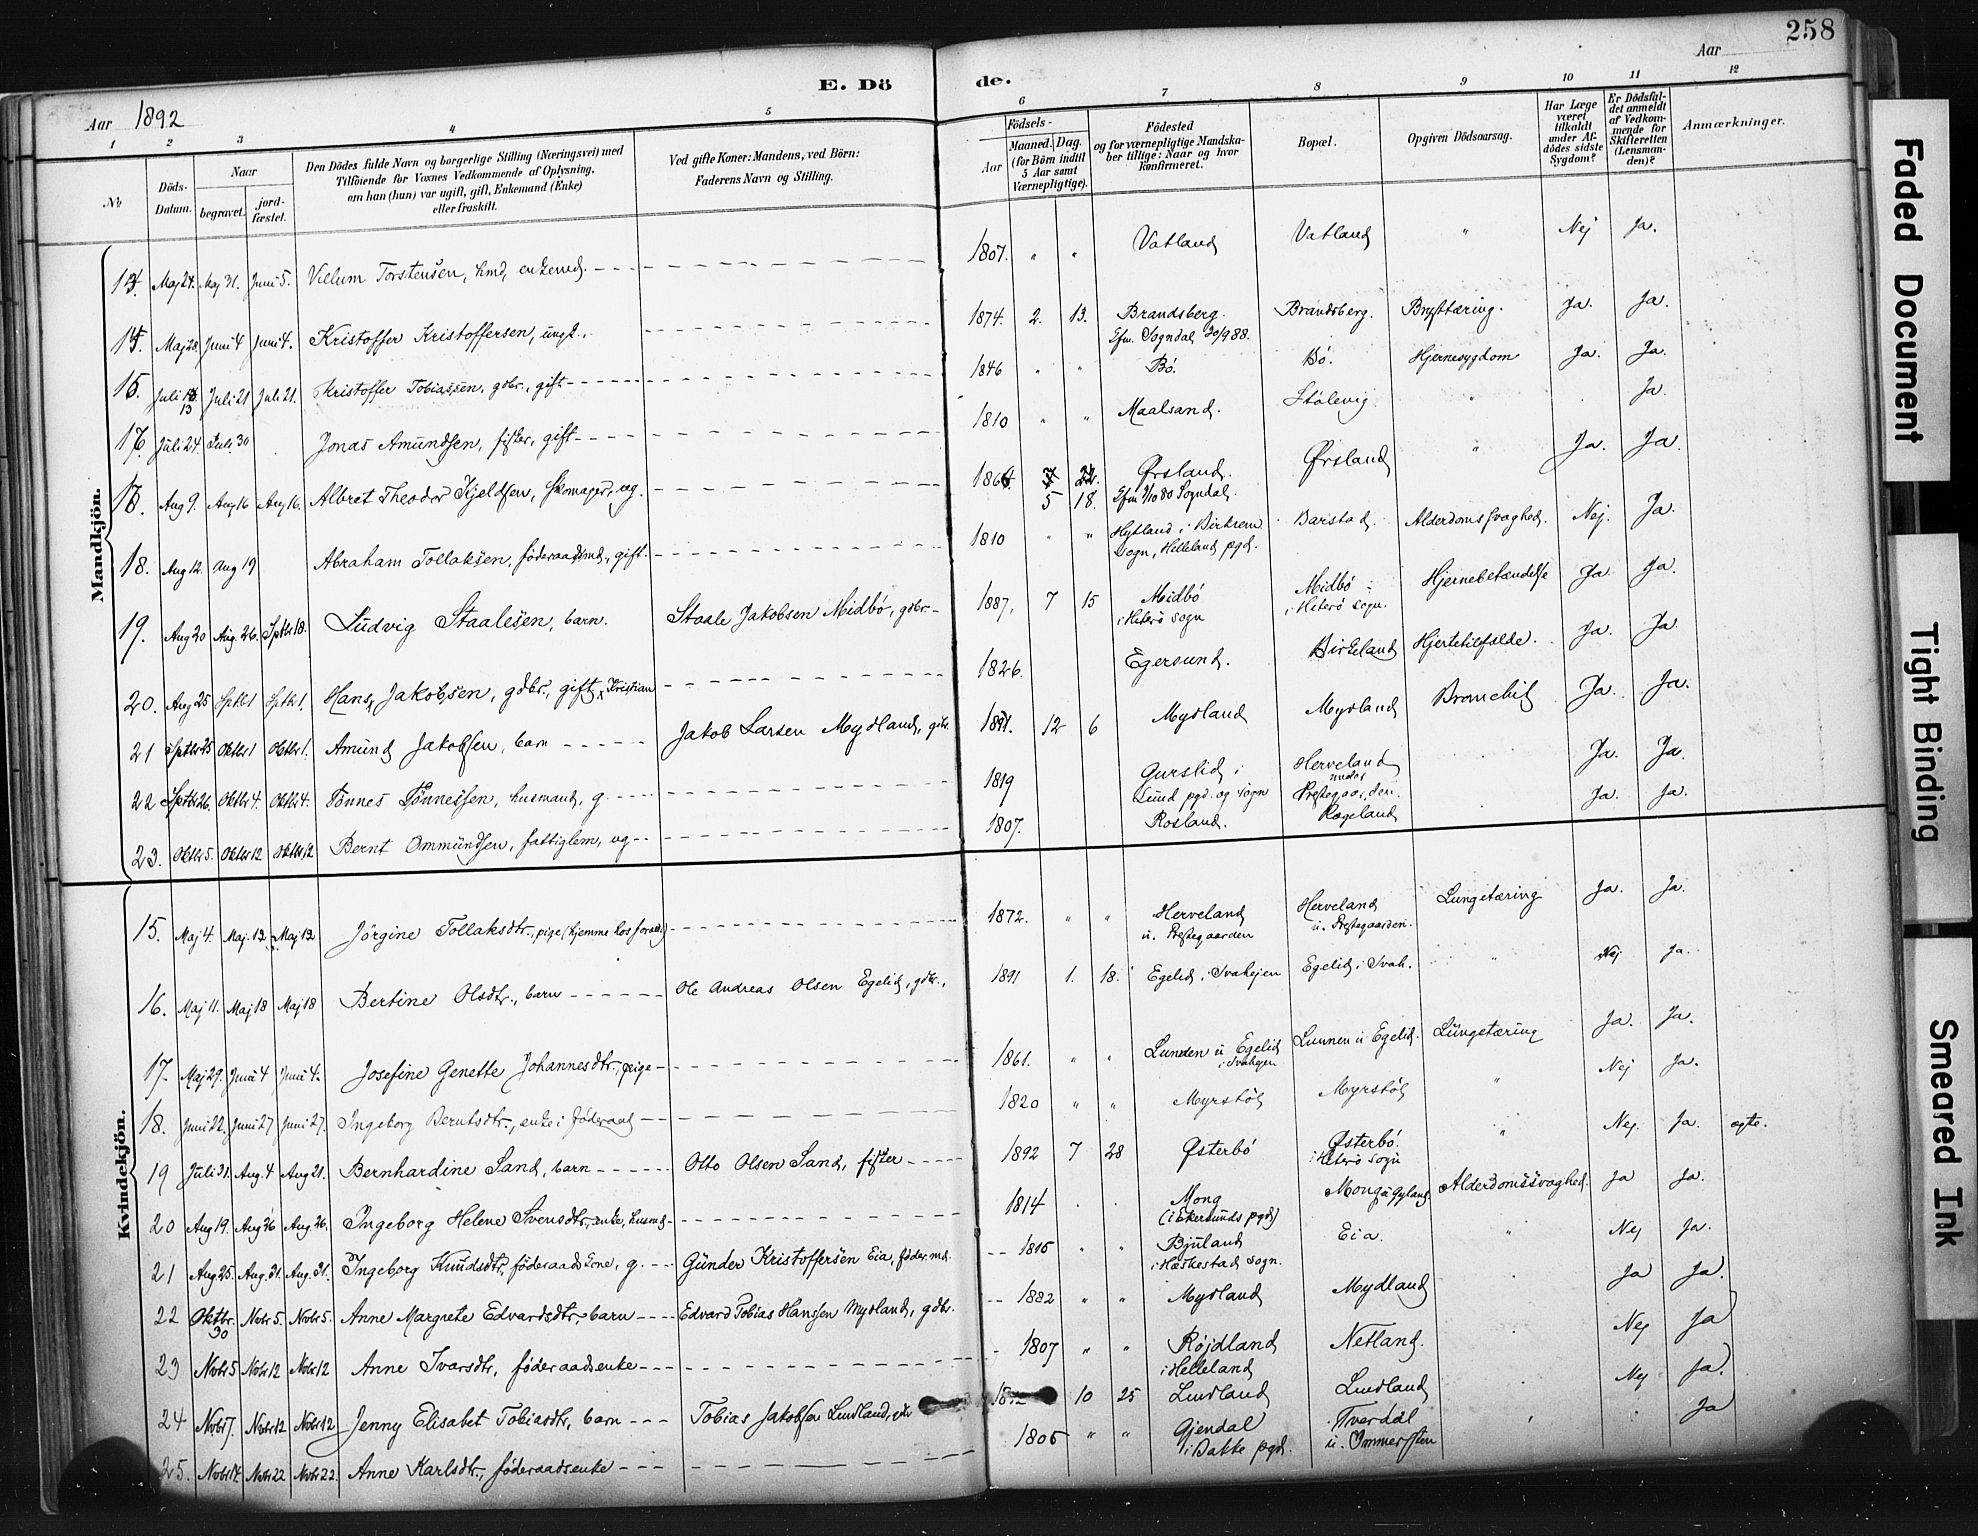 258
Aar 1892
E. Dö
de.
Aar
1 2 3 4 5
6 7 8 9 10 11 12
No
Döds-
Datum.
Naar
begravet.
jord-
fæstet.
Den Dödes fulde Navn og borgerlige Stilling (Næringsvei) med
Tilföiende for Voxnes Vedkommende af Oplysning,
om han (hun) var ugift, gift, Enkemand (Enke)
eller fraskilt.
Ved gifte Koner: Mandens, ved Börn:
Faderens Navn og Stilling.
Födsels-
Aar
Maaned. Dag.
(for Börn indtil
5 Aar samt
Værnepligtige).
Födested
og for værnepligtige Mandska-
ber tillige: Naar og hvor
konfirmeret.
Bopæl.
Opgiven Dödsaarsag.
Har Læge
været
tilkaldt
under Af-
dödes sidste
Sygdom?
Er Dödsfal-
det anmeldt
af Vedkom-
mende for
Skifteretten
(Lensman-
den)?
Anmærkninger.
Mandkjön.
13. Maj 24. Maj 31. Juni 5. Villum Torstensen, hmd, enkemd. 1807. " " Vatland Vatland " Nej Ja.
14. Maj 28. Juni 4 Juni 4. Kristoffer Kristoffersen, ungk., 1874. 2. 13. Brandsberg. Brandsberg. Brysttæring. Ja. Ja.
Sogndal 30/9 88.
15. Juli 13 Juli 21 Juli 21. Kristoffer Tobiassen, gdbr., gift 1846 " " Bö. Bö. Hjernesygdom Ja. Ja.
16. Juli 24. Juli 30 Jonas Amundsen, fisker, gift 1810 " " Maalsand. Stölevig. " Ja
17. Aug 9. Aug 16 Aug 16. Albret Theodor Kjeldsen, skomager, ug. 5 18. Ørsland. Ørsland " Ja. Ja
Sogndal.
18. Aug 12. Aug 19 Abraham Tollaksen, föderaadsmd., gift. 1810 " " Hytland i Birkrem Barstad. Alderdomssvaghed. Nej. Ja.
Sogn, Helleland pgd.
19. Aug 20 Aug. 26. Sptbr 18. Ludvig Staalesen, barn. Staale Jakobsen Midbö, gdbr. 1887, 7 15 Midbö Midbö Hjernebetændelse Ja. Ja.
i Hiterö sogn i Hiterö sogn.
20. Aug 25 Sptbr 1 Sptbr 1. Hans Jakobsen, gdbr., gift Kristian 1826. Egersund. Birkeland Hjertetilfælde. Ja. Ja.
21 Sptbr 25 Oktbr 1 Oktbr 1. Amund Jakobsen, barn Jakob Larsen Mydland, gdbr. 1891. 12 6 Mydland Mydland Bronchit Ja. Ja.
22 Sptbr 26. Oktbr 4. Oktbr 4. Tönnes Tönnessen, husmand, g. 1819 Gurslid i Herveland Ja. Ja.
Lund pgd. og sogn under Prestegaarden.
23. Oktbr 5. Oktbr 12 Oktbr 12 Bernt Ommundsen, fattiglem, ug 1807. Rosland. Rageland Ja. Ja.
Kvindekjön.
15. Maj 4. Maj. 12 Maj 12 Jörgine Tollaksdtr., pige (hjemme hos foræld.) 1872. " " Herveland Herveland Lungetæring Ja. Ja.
u. Prestegaarden u. Prestegaarden.
16. Maj 11. Maj 18 Maj 18 Bertine Olsdtr., barn Ole Andreas Olsen Egelid, gdbr., 1891 1. 18. Egelid, i Svahejen Egelid i Svah. " Nej Ja.
17. Maj 29. Juni 4 Juni 4. Josefine Genette Johannesdtr., pige 1861. " " Lunden u Egelid Lunnen u Egelid. Lungetæring Ja. Ja.
i Svahejen
18. Juni 22. Juni 27 Juni 27. Ingeborg Berntsdtr., enke i föderaad 1820 " " Myrstöl Myrstöl " Nej Ja.
19 Juli 31. Aug. 4 Aug 21. Bernhardine Sand, barn Otto Olsen Sand, fisker 1892 7 28 Østerbö Østerbö. " Nej. Ja. ægte.
i Hiterö sogn
20 Aug 19. Aug 26 Aug. 26. Ingeborg Helene Svensdtr., enke, husmd. 1814 Mong Mong u Gyland Alderdomssvaghed. Ja Ja.
(i Ekersunds pgd)
21 Aug 25. Aug. 31. Aug. 31. Ingeborg Knudsdtr., föderaadskone, g. Gunder Kristoffersen Eia, föder.md. 1815 " " Bjuland Eia. " Nej Ja.
i Hæskestad sogn.
22 Oktbr. 30 Novbr 5. Novbr 5. Anne Margrete Edvardsdtr., barn Edvard Tobias Hanssen Mydland, gdbr. 1882 " " Mydland Mydland Ja Ja.
23 Novbr 5 Novbr 12 Novbr 12 Anne Ivarsdtr., föderaadsenke 1807 " " Röjdland Netland. Nej Ja
i Helleland
24 Novbr 7. Novbr 12 Novbr 12 Jenny Elisabet Tobiasdtr., barn Tobias Jakobsen Lindland, gdbr 10 25 Lindland Lindland Nej Ja.
25. Novbr 14. Novbr 22 Novbr 22. Anne Karlsdtr., föderaadsenke 1805 " " Gjendal Tverdal Ja
i Bakke pgd.
Faded Document
Tight Binding
Smeared Ink